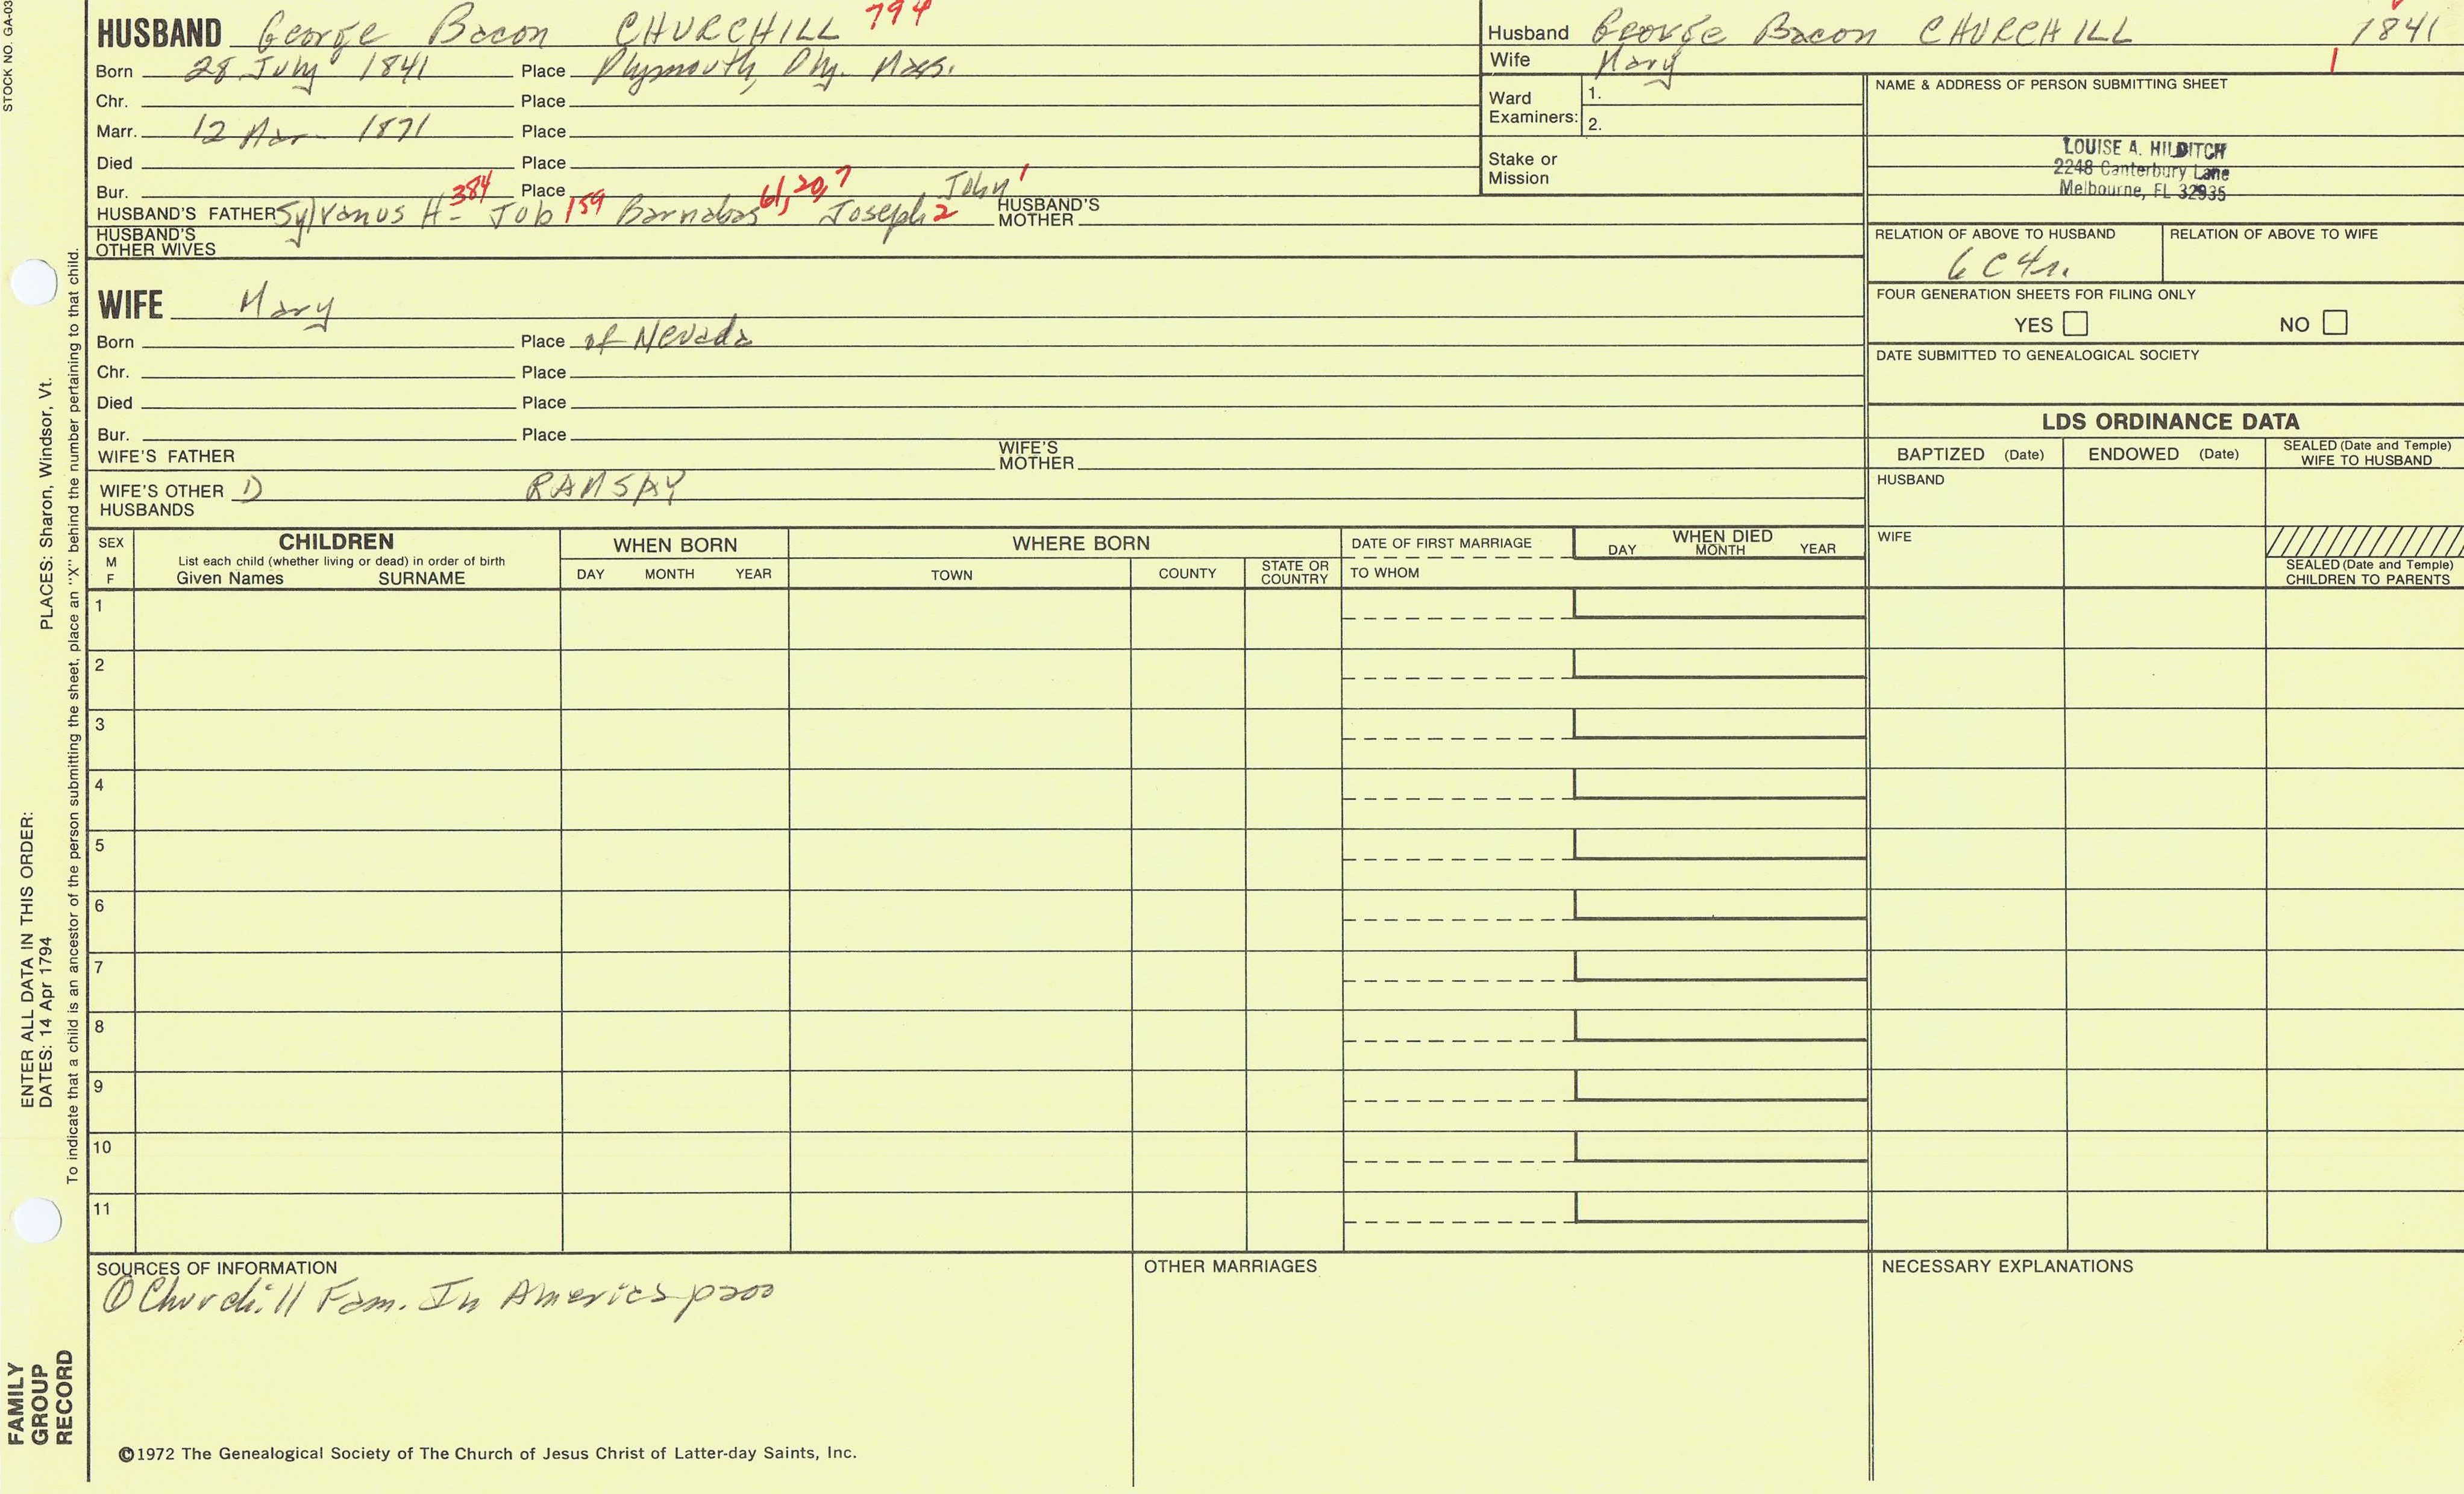 STOCK NO. GA-03
HUSBAND George Bacon CHURCHILL 794
Born 28 July 1841 Place Plymouth, Ply. Mass.
Chr. Place
Marr. 12 Mar 1871 Place
Died Place
Bur. Place
HUSBAND'S FATHER Sylvanus H- 384 Job 159 Barnabas 61, 20, 7 Joseph 2 John 1 HUSBAND'S MOTHER
HUSBAND'S OTHER WIVES
WIFE Mary
Born Place of Nevada
Chr. Place
Died Place
Bur. Place
WIFE'S FATHER WIFE'S MOTHER
WIFE'S OTHER HUSBANDS D RAMSAY
Husband George Bacon CHURCHILL 1841
Wife Mary 1
Ward Examiners: 1.
2.
Stake or Mission
NAME & ADDRESS OF PERSON SUBMITTING SHEET
LOUISE A. HILDITCH
2248 Canterbury Lane
Melbourne, FL 32935
RELATION OF ABOVE TO HUSBAND RELATION OF ABOVE TO WIFE
6C4r.
FOUR GENERATION SHEETS FOR FILING ONLY
YES NO
DATE SUBMITTED TO GENEALOGICAL SOCIETY
LDS ORDINANCE DATA
BAPTIZED (Date) ENDOWED (Date) SEALED (Date and Temple) WIFE TO HUSBAND
HUSBAND
WIFE
SEALED (Date and Temple) CHILDREN TO PARENTS
SEX M F
CHILDREN
List each child (whether living or dead) in order of birth
Given Names SURNAME
WHEN BORN
DAY MONTH YEAR
WHERE BORN
TOWN COUNTY STATE OR COUNTRY
DATE OF FIRST MARRIAGE
TO WHOM
WHEN DIED
DAY MONTH YEAR
1
2
3
4
5
6
7
8
9
10
11
SOURCES OF INFORMATION
① Churchill Fam. In America p200
OTHER MARRIAGES
NECESSARY EXPLANATIONS
©1972 The Genealogical Society of The Church of Jesus Christ of Latter-day Saints, Inc.
FAMILY GROUP RECORD
ENTER ALL DATA IN THIS ORDER:
DATES: 14 Apr 1794 PLACES: Sharon, Windsor, Vt.
To indicate that a child is an ancestor of the person submitting the sheet, place an "X" behind the number pertaining to that child.